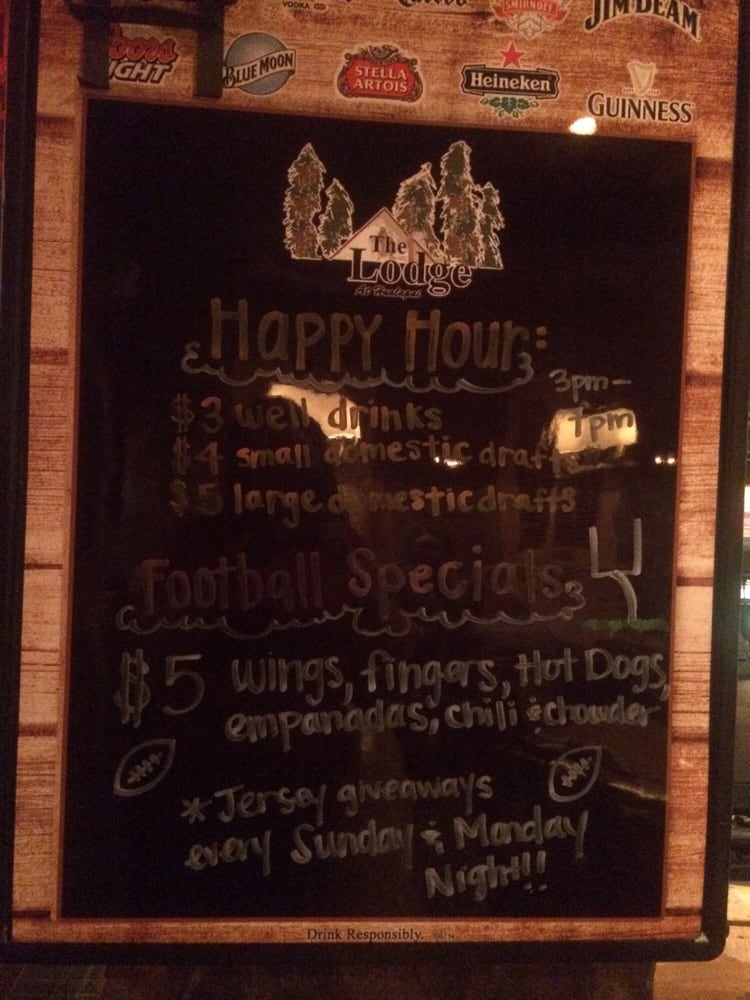 VODKA
SMIRNOFF
JIM BEAM
Coors LIGHT
BLUE MOON
STELLA ARTOIS
Heineken
GUINNESS
The
Lodge
At Hualapai
Happy Hour:
3pm-
7pm
$3 well drinks
$4 small domestic drafts
$5 large domestic drafts
Football Specials
$5 wings, fingers, Hot Dogs,
empanadas, chili & chowder
*Jersey giveaways
every Sunday & Monday
Night!!!
Drink Responsibly.